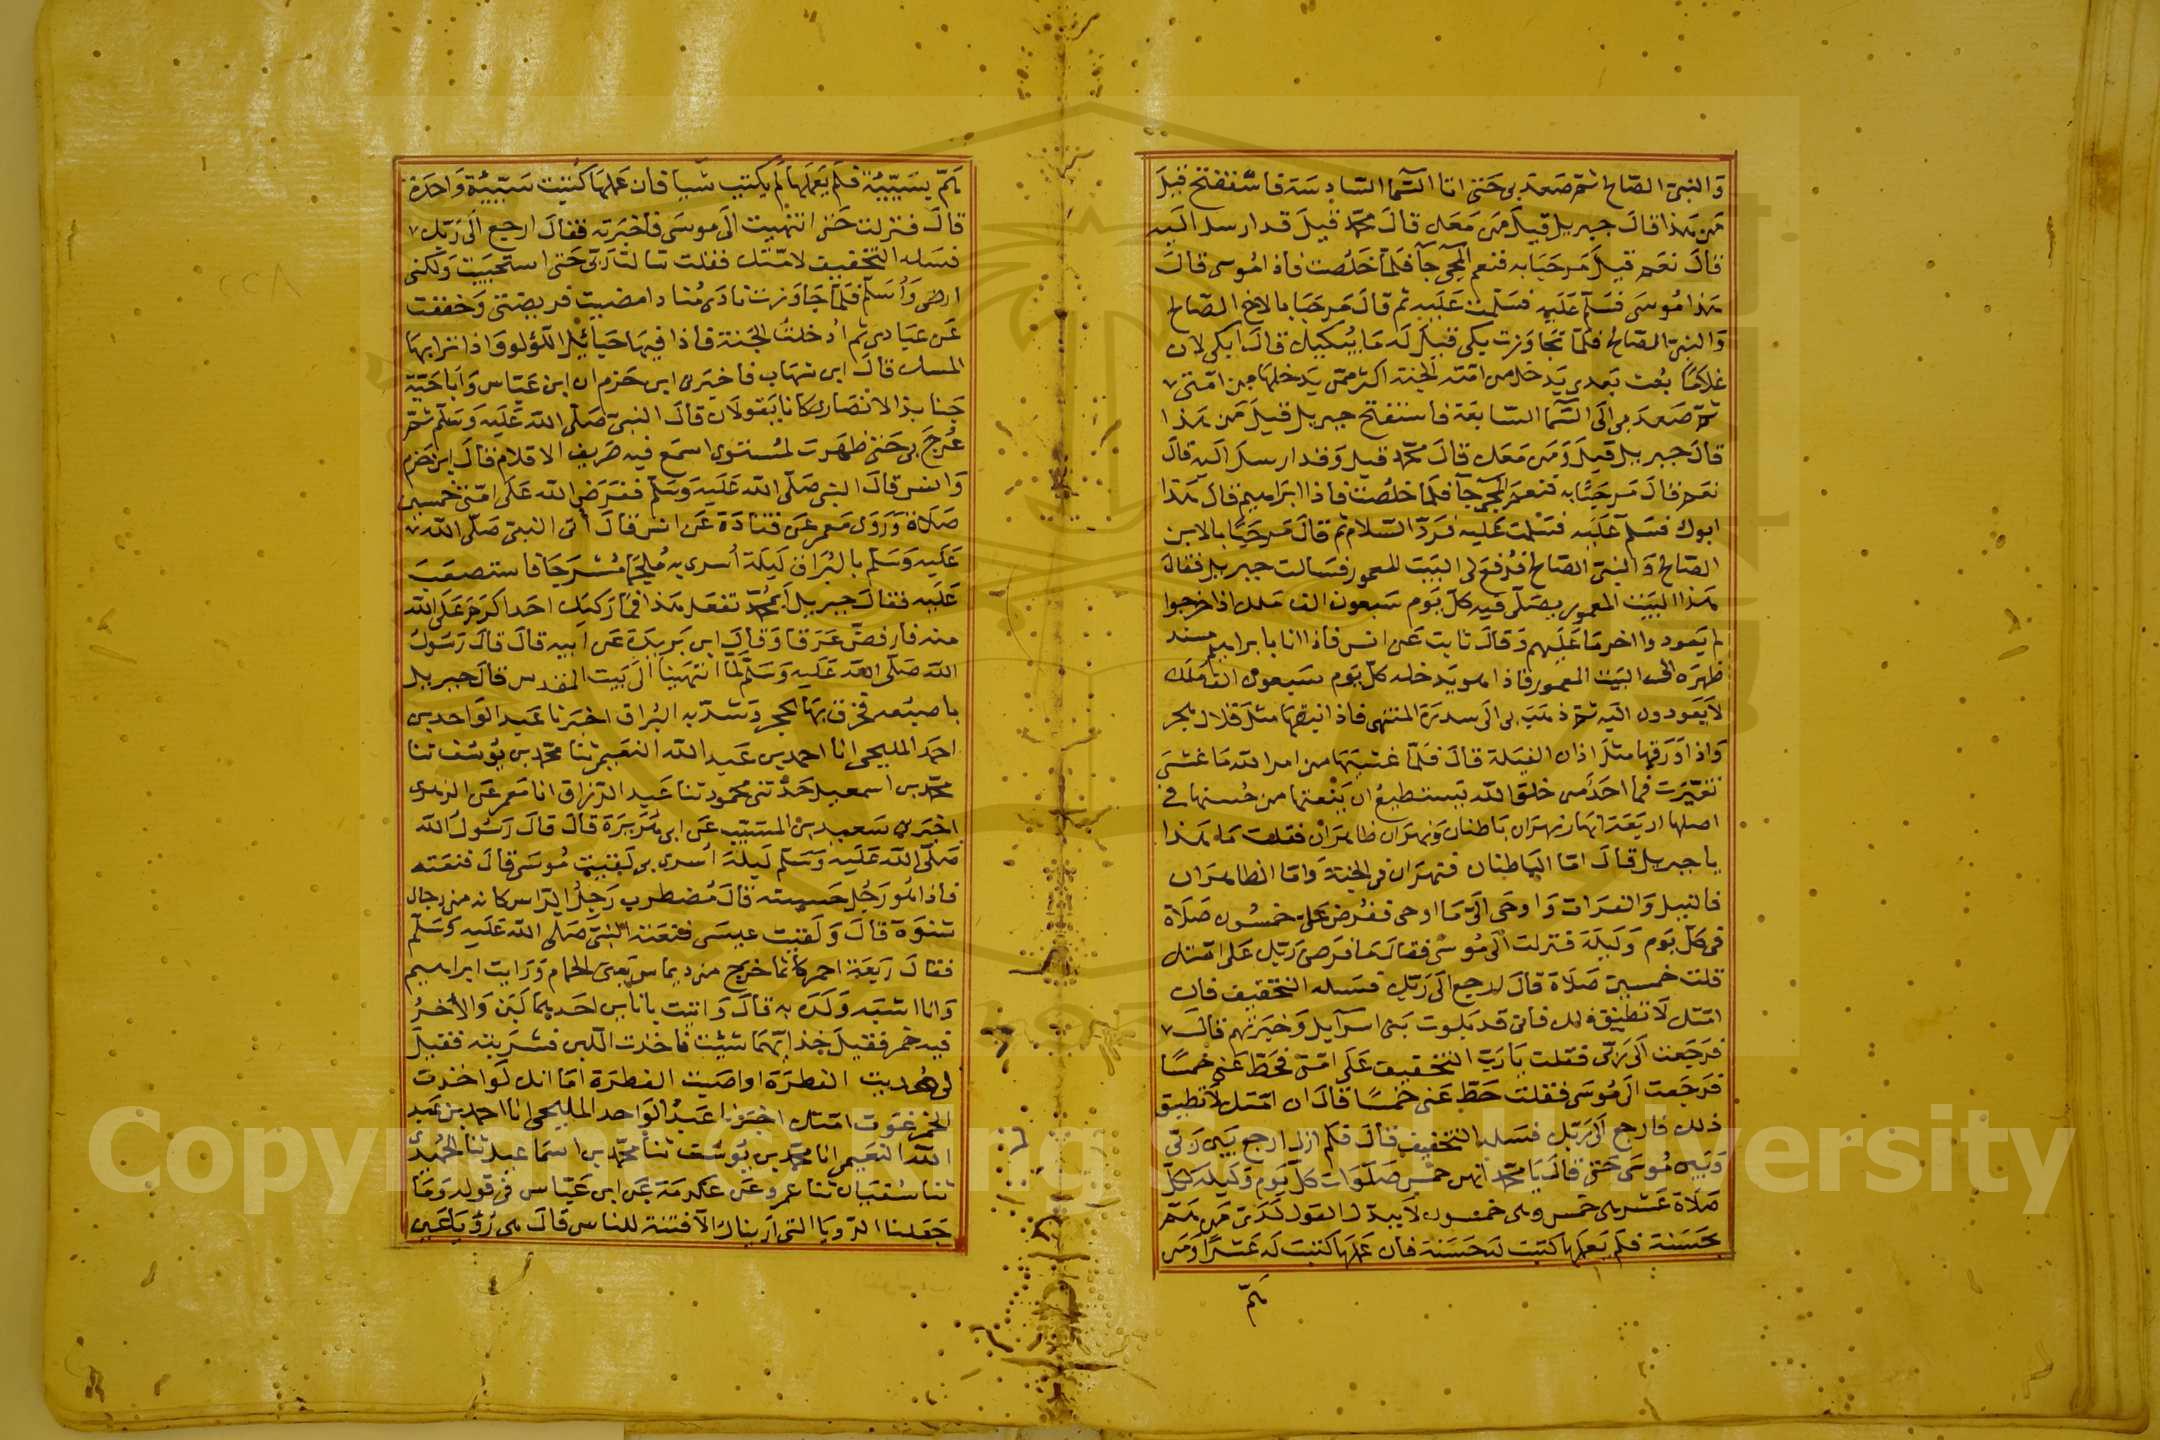 وَالنبيّ الصّالح ثمّ صَعدَ بى حَتى اتا السّما السّادسَة فاستفتح قيلَ
مَن هَذا قالَ جبريل قيلَ مَن مَعَك قالَ محمّد قيلَ قد ارسل اليَه
قالَ نعَم قيلَ مَرحَبا به فنعم المجى جآ فلمّا خلصت فاذا موسى قالَ
هَذا مُوسَى فسَلّم عَلَيه فسَلمت عَلَيه ثم قالَ مَرحَبا بالاخ الصّالح
وَالنبىّ الصّالح فلمّا تجَاوَزت بكى قيلَ لَه مَا يُبكيك قالَ ابكى لان
غلامًا بُعث بَعدى يَدخل من امّته الجنة اكثر ممّن يَدخلهَا من امّتى
ثمّ صَعدَ بى الَى السّما السّابعَة فاستفتح جبريل قيلَ مَن هَذا
قالَ جبريل قيلَ وَمَن مَعَك قالَ محمّد قيل وَقد ارسلَ اليه قالَ
نعَم قالَ مَرحَبًا به فنعمَ المجى جآ فلما خلصت فاذا ابرَاهيم قالَ هَذا
ابوك فسَلّم عَلَيه فسَلمت عَليه فرَدّ السّلام ثم قالَ مَرحَبًا بالابن
الصّالح وَالنبىّ الصّالح فرُفعَ لى البَيت المعمور فسَالت جبريل فقالَ
هَذا البَيت المعمور يصَلّى فيه كلّ يَوم سَبعون الف ملك اذا خرجوا
لم يَعودوا اخر مَا عَلَيهم وَقالَ ثابت عَن انس فاذا انا بابراهيم مسند
ظهرَه الى البَيت المعمور فاذا هو يَدخله كلّ يَوم سَبعون الف مَلك
لا يَعودون اليَه ثمّ ذهَبَ بى الَى سدرَة المنتهى فاذا نبقهَا مثلَ قلال هجر
وَاذا وَرَقهَا مثلَ اذان الفيَلة قالَ فلَمّا غشيَهَا من امر الله مَا غشىَ
تغيّرَت فما احَدٌ من خلق الله يَستطيعُ ان يَنعتها من حُسنها فى
اصلها اربَعَة انهَار نهرَان باطنان وَنهرَان ظاهرَان فقلت مَا هَذا
يا جبريل قالَ امّا الباطنان فنهرَان فى الجنة وَامّا الظاهرَان
فالنيل وَالفرَات وَاوحَى الَىّ مَا اوحى ففُرضَ عَلى خمسُون صَلاة
فى كلّ يَوم وَلَيلة فنزلت الَى مُوسَى فقالَ مَا فرَضَ رَبّك عَلى امّتك
قلت خمسين صَلَاة قالَ ارجع الَى رَبّك فسَله التخفيف فان
امّتك لا تطيق ذلك فانى قد بَلوت بَنى اسرآيل وَخبَرتهم قالَ
فرَجَعت الَى رَبّى فقلت يَا رَبّ التخفيف عَلَى امّتى فحَطّ عَنى خمسًا
فرَجَعت الَى مُوسَى فقلت حَطّ عَنى خمسًا قالَ ان امّتك لا تطيق
ذلك فارجع الَى رَبّك فسَله التخفيف قالَ فلم ازل ارجع بَين رَبّى
وَبَين مُوسَى حَتى قالَ يَا محمّد انهن خمسُ صَلَوات كلّ يَوم وَلَيلة لكلّ
صَلاة عَشر هى خمس وهى خمسون لا يبدّل القول لدَىّ مَن همّ
بحَسَنة فلم يَعملهَا كتبت له حَسَنة فان عَملهَا كتبت لَه عَشرًا وَمَن
همّ
همّ بسَيّئة فلَم يَعملهَا لم يكتب شَيئا فان عَملهَا كتبت سَيّئة وَاحدَة
قالَ فنزلت حَتى انتهيت الَى موسَى فأخبَرته فقالَ ارجع الَى رَبّك
فسَله التخفيف لامّتك فقلت سَالت رَبّى حَتى استحيَيت وَلكنى
ارضى وَاُسَلّم فلمّا جَاوَزت نادَى مُناد امضيت فريضتى وَخففت
عَن عبَادى ثم ادخلتُ الجَنة فاذا فيهَا حَبَائل اللّؤلو وَاذا ترَابهَا
المسك قالَ ابن شهَاب فاخبَرنى ابن حَزم ان ابن عَبّاس وَابا حَبّة
الانصَارى كانا يَقولان قالَ النبىّ صَلّى الله عَلَيه وَسَلّم ثمّ
عُرجَ بى حَتى ظهَرت لمُستوى اسمَع فيه صَريف الاقلام قالَ ابن حَزم
وَانس قالَ النبى صَلّى الله عَلَيه وَسَلّم ففرَضَ الله عَلَى امّتى خمسين
صَلاة وَرَوَى مَعمر عَن قتادَة عَن انس قالَ أتى النبىّ صَلّى الله
عَلَيه وَسَلّم بالبُرَاق لَيلة أسرى به مُلجَمًا مُسْرَجَا فاستصعَبَ
عَلَيه فقالَ جبريل أبمُحَمّد تفعَل هَذا فما رَكبَك احَد اكرَم عَلَى الله
منه فارفضّ عَرَقا وَقالَ ابن بريدَة عَن ابيه قالَ قالَ رَسُولُ
الله صَلّى الله عَلَيه وَسَلّم لمّا انتهَينا الَى بَيت المقدس قالَ جبريل
باصبَعه فخرَق بهَا الحجر وَشدّ به البُراق اخبَرنا عَبد الوَاحد بن
احمَد المليحى انا احمد بن عَبد الله النعَيمى ثنا محمّد بن يوسف ثنا
محمّد بن اسمعيل حَدّثنى محمود ثنا عَبد الرّزاق انا مَعمر عَن الزهرى
اخبَرنى سَعيد بن المسَيّب عَن ابى هُرَيرَة قالَ قالَ رَسُولُ الله
صَلّى الله عَلَيه وَسَلّم لَيلَة أسرى بى لَقيت مُوسَى قالَ فنعَته
فاذا هُو رَجُل حَسبته قالَ مُضطرب رَجِلُ الرّاس كانه من رجال
شنوَة قالَ وَلَقيت عيسَى فنعَته النبىّ صَلى الله عَلَيه وَسَلّم
فقالَ رَبعَة احمر كأنما خرج من ديماس يَعنى الحمام وَرَايت ابراهيم
وَانا اشبَه وَلَده به قالَ وَاتيت باناءَين احَدهمَا لَبن وَالأخرُ
فيه خمر فقيلَ خذ ايّهمَا شئت فاخذت اللّبن فشَربته فقيلَ
لى هُديت الفطرَة او اصَبت الفطرَة امَا انك لَو اخذت
الخمر غوَت امّتك اخبَرنا عَبدُ الوَاحد المليحى انا احمد بن عَبد
الله النعَيمى انا محمّد بن يُوسُف ثنا محمّد بن اسمَاعيل ثنا الحُميدى
ثنا سُفيَان ثنا عَمرو عَن عكرمَة عَن ابن عَبّاس فى قوله وَمَا
جَعَلنا الرّويَا التى ارَيناك الا فتنة للناس قالَ هى رُؤيَا عَين
Copyright © King Saud University
1957